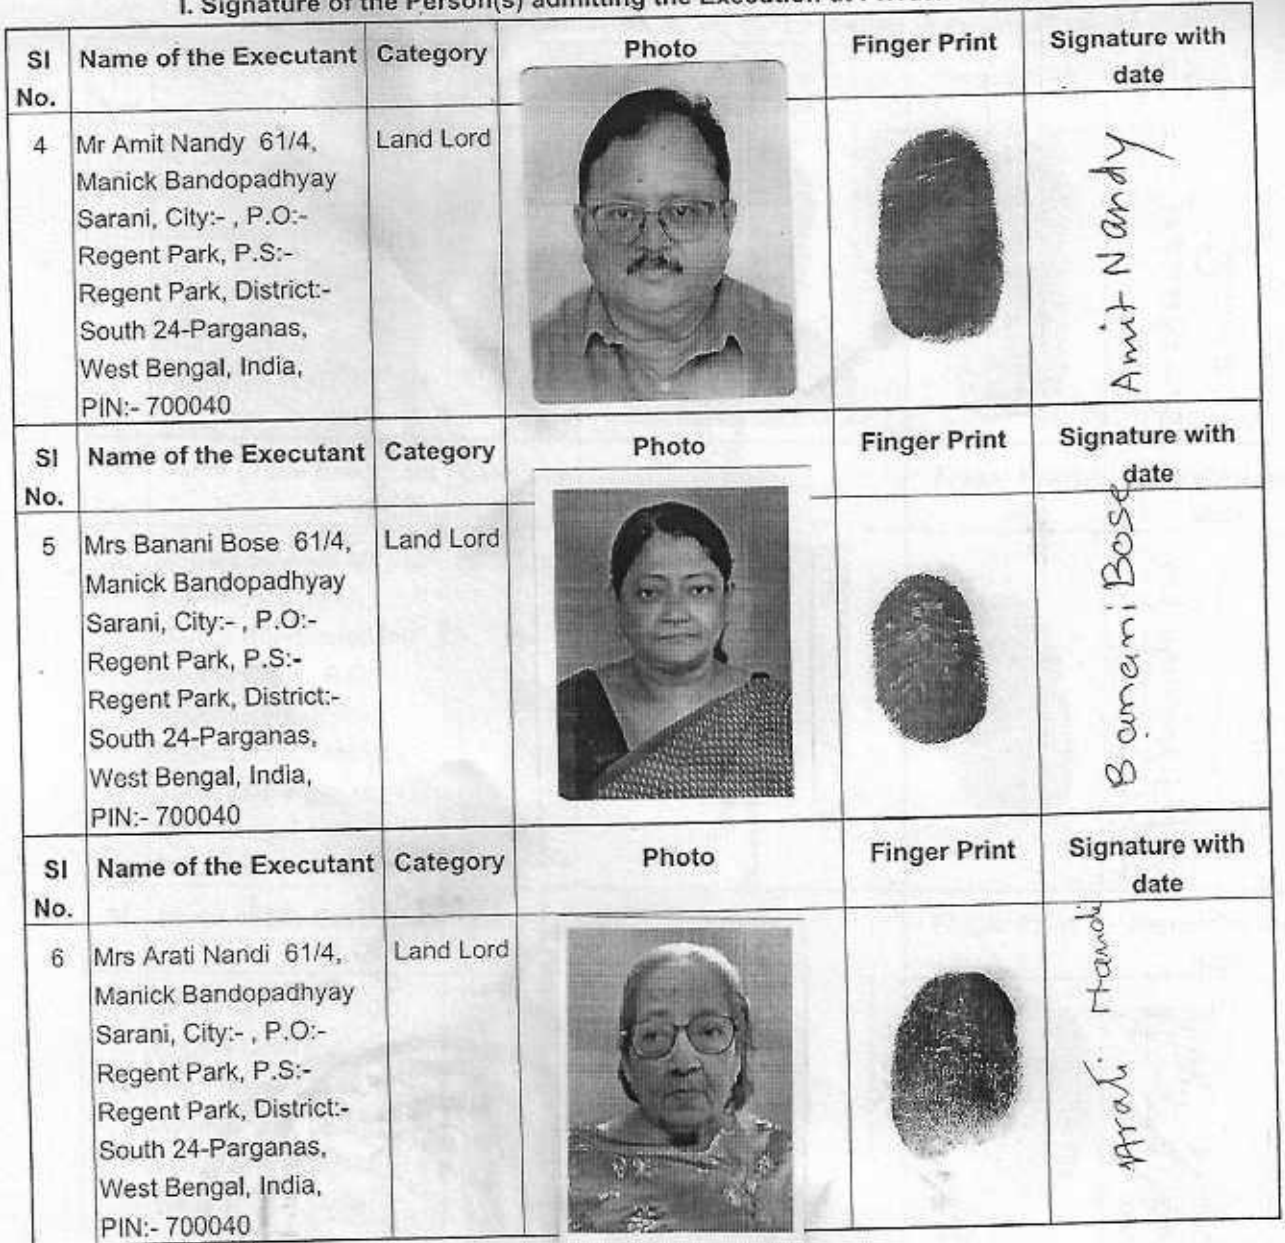 I. Signature of the Person(s) admitting the Execution at
Sl No. Name of the Executant Category Photo Finger Print Signature with date
4 Mr Amit Nandy 61/4, Land Lord
Manick Bandopadhyay
Sarani, City:- , P.O:-
Regent Park, P.S:-
Regent Park, District:-
South 24-Parganas,
West Bengal, India,
PIN:- 700040
Amit Nandy
Sl No. Name of the Executant Category Photo Finger Print Signature with date
5 Mrs Banani Bose 61/4, Land Lord
Manick Bandopadhyay
Sarani, City:- , P.O:-
Regent Park, P.S:-
Regent Park, District:-
South 24-Parganas,
West Bengal, India,
PIN:- 700040
Banani Bose
Sl No. Name of the Executant Category Photo Finger Print Signature with date
6 Mrs Arati Nandi 61/4, Land Lord
Manick Bandopadhyay
Sarani, City:- , P.O:-
Regent Park, P.S:-
Regent Park, District:-
South 24-Parganas,
West Bengal, India,
PIN:- 700040
Arati Nandi